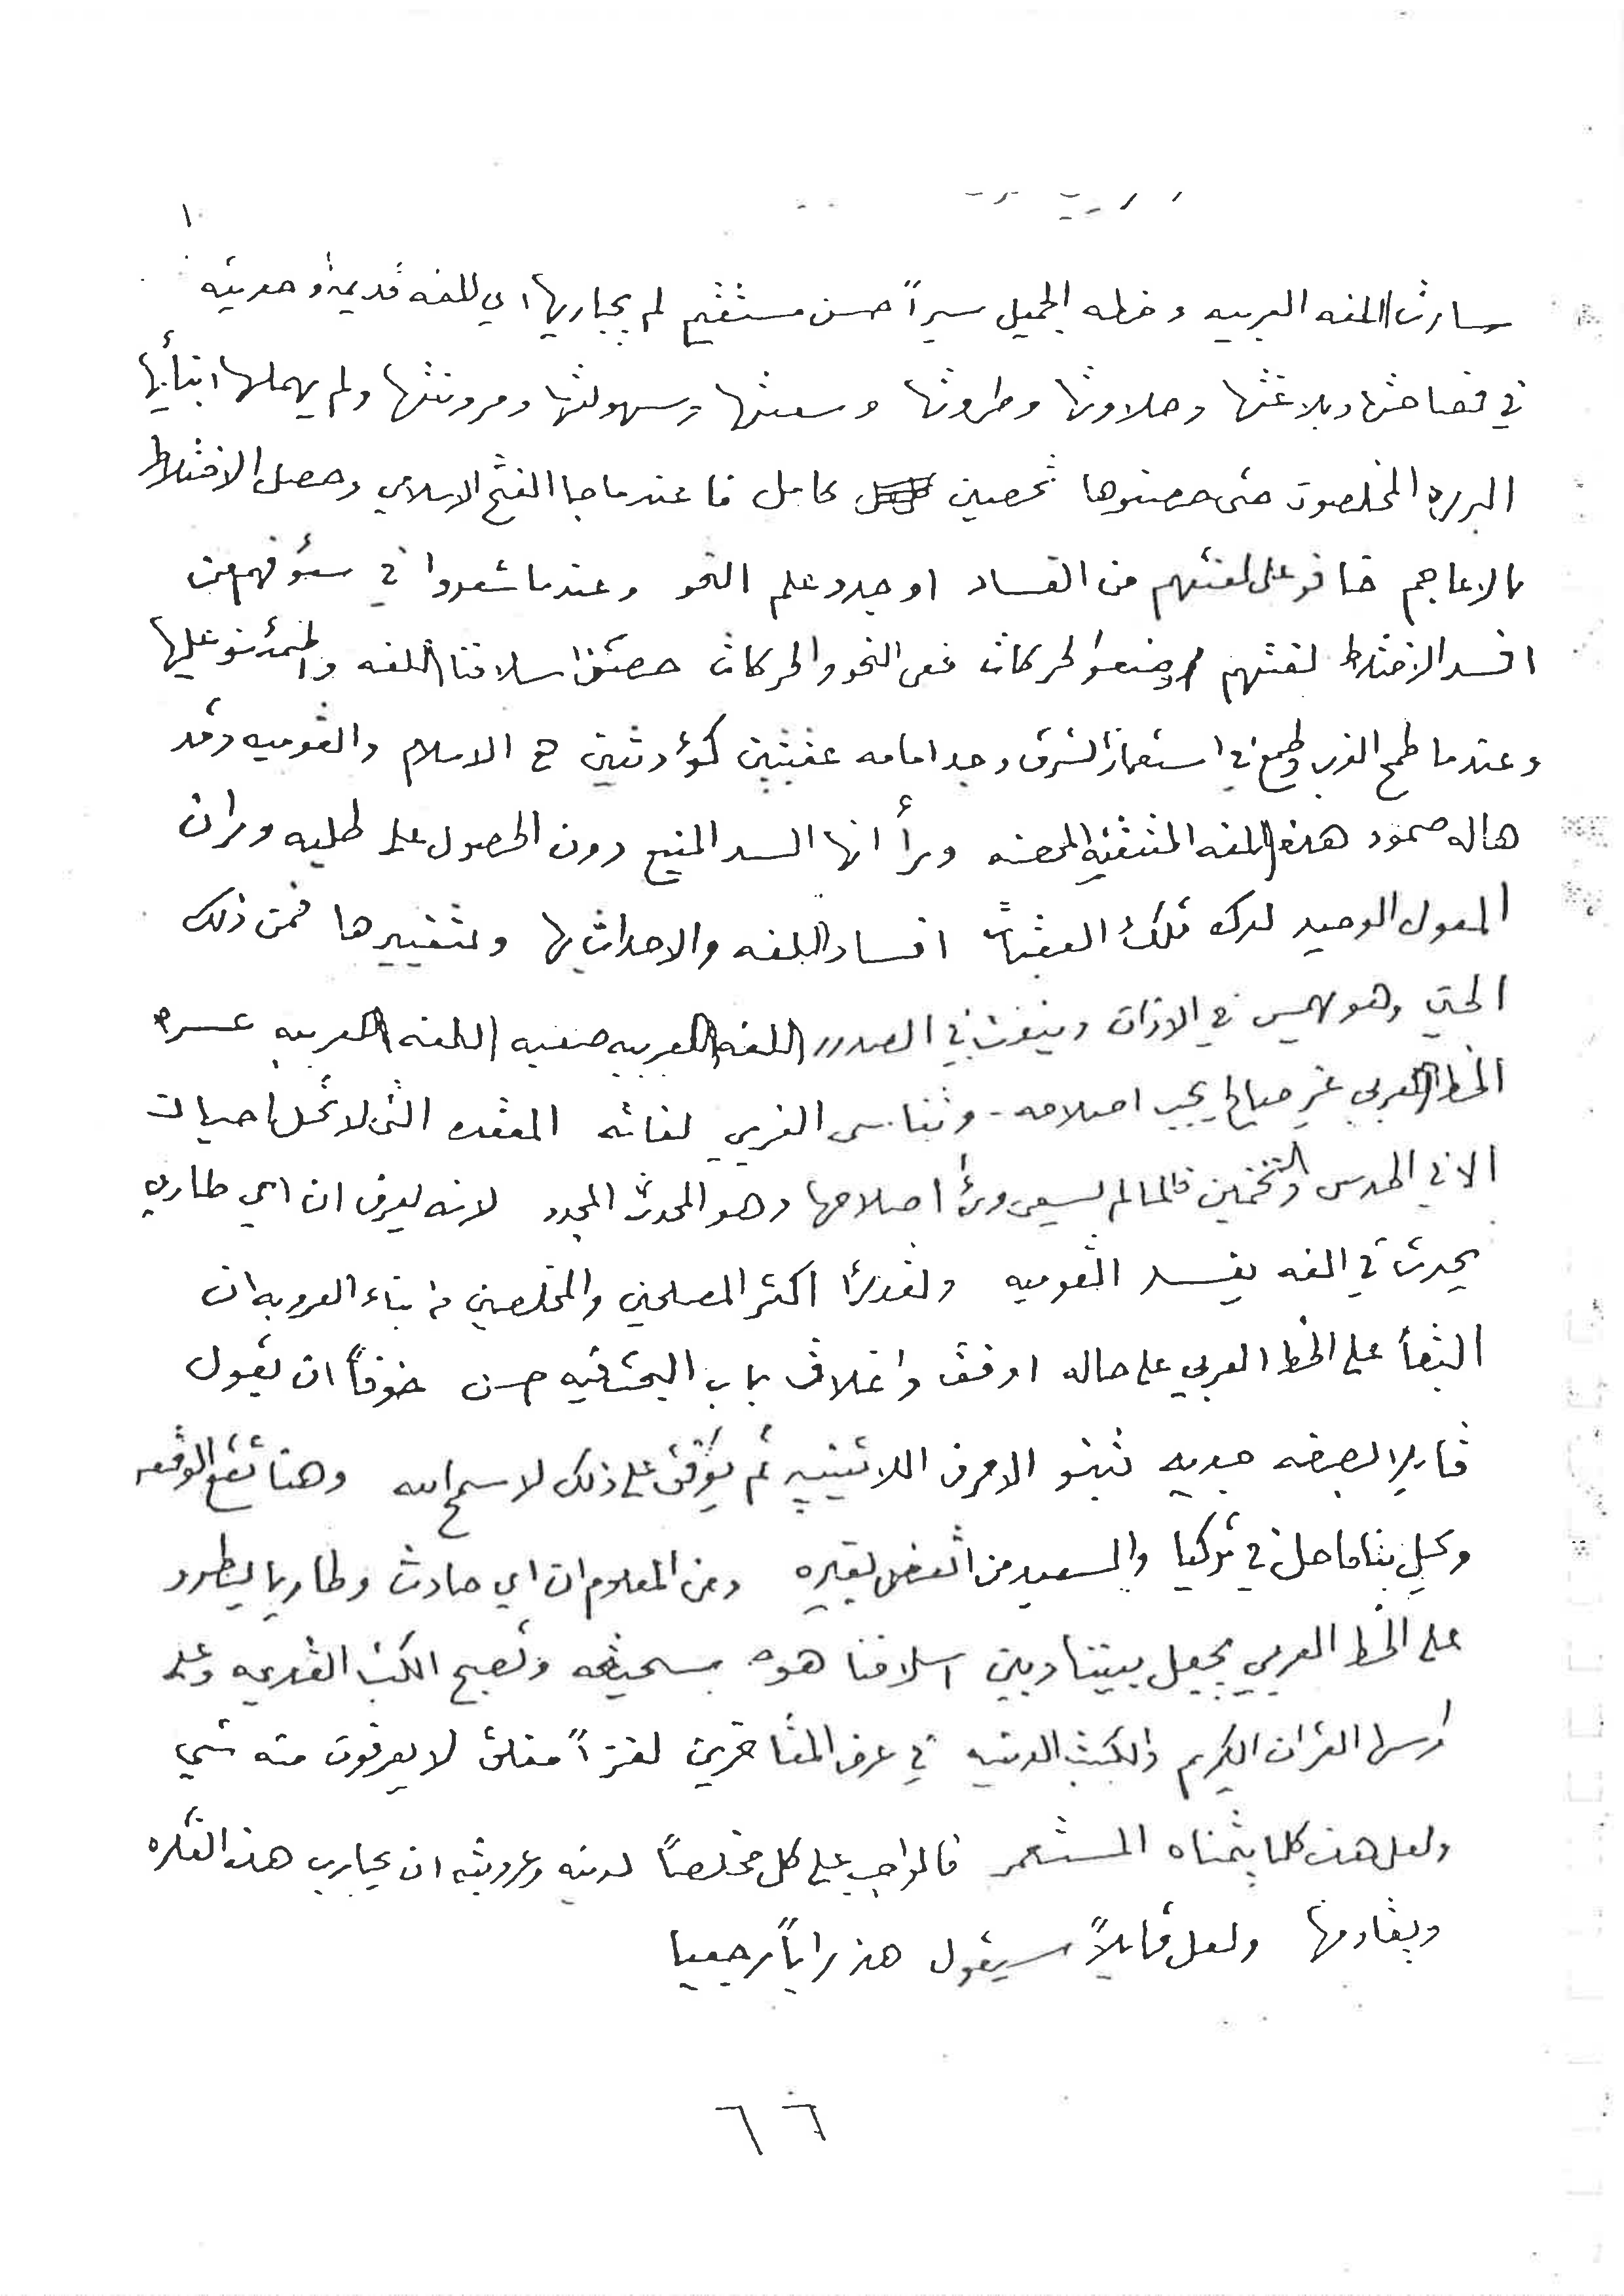 ١٠
سارت اللغه العربيه وخطه الجميل سيراً حسن مستقيم لم يجاريها اي للغه قديمة وحديثه
في فصاحتها وبلاغتها وحلاوتها وطروتها وسعتها وسهولتها ومرونتها ولم يهملها ابنأيها
البرره المخلصون حتى حصنوها تحصين كامل فا عندما جا الفتح الاسلامي وحصل الاختلاط
بالاعاجم خافو على لغتهم من الفساد اوجدو علم النحو وعندما شعروا في
افسد الاختلاط لغتهم وضعو الحركات ففي النحو والحركات حصنو اسلافنا اللغه واطمئنو عليها
وعندما طمح الغرب وطمع في استعمار الشرق وجد امامه عقبتين كؤدتين الاسلام والقوميه وقد
هاله صمود هذه اللغه المتقنه المحصنه ورأ انها السد المنيع دون الحصول على طلبه وران
المعول الوحيد لدك تلك العقبات افساد اللغه والاحداث بها وتغييرها فمن ذلك
الحين وهو يهمس في الاذان وينفث في الصدور اللغه العربيه صعبه اللغه العربيه عسره
الخط العربي غير صالح يجب اصلاحه - وتناسى الغربي لغاته المعقده التي لا تحل احيان
الا في الحدس والتخمين فلما لم يسعى ورأ اصلاحها وهو المحدث المجدد لانه يعرف ان اي طاري
يحدث في الغه يفسد القوميه ولقد رأ اكثر المصلحين والمخلصين من بناء العروبه ان
البقأ على الخط العربي على حاله اوفق واغلاق باب البحث فيه حسن خوفاً ان يقول
قايلا بصبغه جديه نتبنو الاحرف اللاتينيه ثم يوفق على ذلك لا سمح الله وهنا تقع الوقعه
ويحل بنا ما حل في تركيا والسعيد من اتعض بغيره ومن المعلوم ان اي حادث وطاريا يطرو
على الخط العربي يجعل بيننا وبين اسلافنا هوه سحيقه وتصبح الكتب القديمه وعلى
رأسها القران الكريم والكتب الدينيه في عرف المتاخرين لغزاً مغلق لا يعرفون منه شي
ولعل هذ كلما يتمناه المستعمر فالواجب على كل مخلصاً لدينه وعروبته ان يحارب هذه الفكره
ويقاومها ولعل قايلاً سيقول هذ راياً رجعيا
٦٦